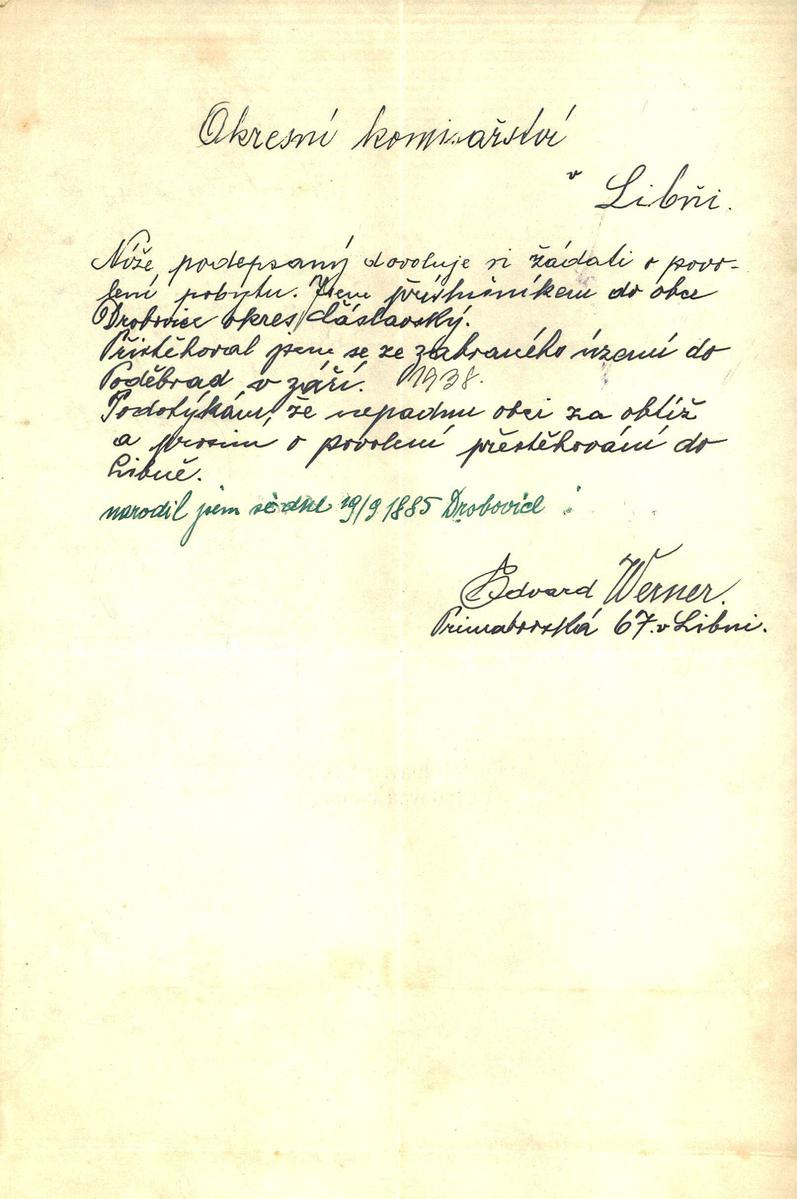 Okresní komisařství
v Libni.
Níže podepsaný dovoluje si žádati o povo-
lení pobytu. Jsem příslušníkem do obce
Drobovice okres Čáslavský.
Přistěhoval jsem se ze zabraného území do
Poděbrad v září. 1938.
Podotýkám, že nepadnu obci za obtíž
a prosím o povolení přestěhování do
Libně.
narodil jsem se dne 19/9 1885 Drobovice
Edvard Werner.
Primatorská 67. v Libni.